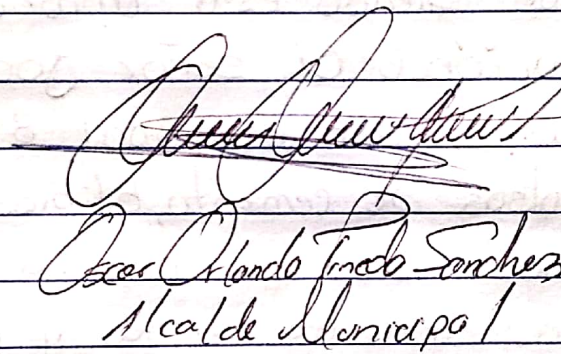 Oscar Orlando Pinedo Sánchez
Alcalde Municipal